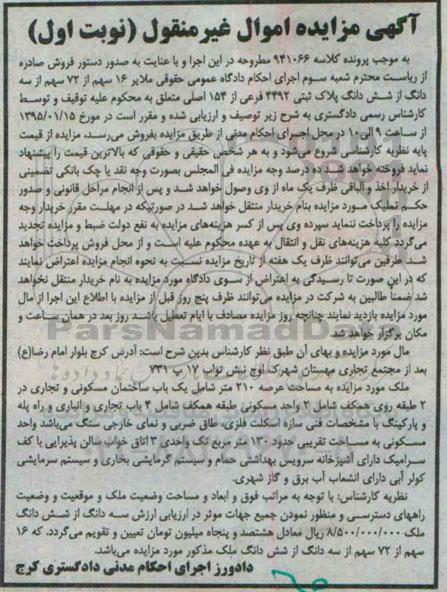 آگهی مزایده اموال غیر منقول (نوبت اول)
به موجب پرونده کلاسه ۹۴۱۰۶۶ مطروحه در این اجرا و با عنایت به صدور دستور فروش صادره
از ریاست محترم شعبه سوم اجرای احکام دادگاه عمومی حقوقی ملایر ۱۶ سهم از ۷۲ سهم از سه
دانگ از شش دانگ پلاک ثبتی ۴۴۹۲ فرعی از ۱۵۴ اصلی متعلق به محکوم علیه توقیف و توسط
کارشناس رسمی دادگستری به شرح زیر توصیف و ارزیابی شده و مقرر است در مورخ ۱۳۹۵/۰۱/۱۵
از ساعت ۹ الی ۱۰ در محل اجرای احکام مدنی از طریق مزایده بفروش می‌رسد، مزایده از قیمت
پایه نظریه کارشناسی شروع می‌شود و به هر شخص حقیقی و حقوقی که بالاترین قیمت را پیشنهاد
نماید فروخته خواهد شد ده درصد وجه مزایده فی المجلس بصورت وجه نقد یا چک بانکی تضمینی
از خریدار اخذ و الباقی ظرف یک ماه از وی وصول خواهد شد و پس از انجام مراحل قانونی و صدور
حکم تملیک مورد مزایده بنام خریدار منتقل خواهد شد در صورتیکه در مهلت مقرر خریدار وجه
مزایده را پرداخت ننماید سپرده وی پس از کسر هزینه‌های مزایده به نفع دولت ضبط و مزایده تجدید
می‌گردد کلیه هزینه‌های نقل و انتقال به عهده محکوم علیه است و از محل فروش پرداخت خواهد
شد طرفین می‌توانند ظرف یک هفته از تاریخ مزایده نسبت به نحوه انجام مزایده اعتراض نمایند
که در این صورت تا رسیدگی به اعتراض از سوی دادگاه مورد مزایده به نام خریدار منتقل نخواهد
شد ضمناً طالبین به شرکت در مزایده می‌توانند ظرف پنج روز قبل از مزایده با اطلاع این اجرا از مال
مورد مزایده بازدید نمایند چنانچه روز مزایده مصادف با ایام تعطیل باشد روز بعد در همان ساعت و
مکان برگزار خواهد شد.
مال مورد مزایده و بهای آن طبق نظر کارشناس بدین شرح است: آدرس کرج بلوار امام رضا(ع)
بعد از مجتمع تجاری مهستان شهرک اوج نبش نواب ۱۷ پ ۷۳۱
ملک مورد مزایده به مساحت عرصه ۲۱۰ متر شامل یک باب ساختمان مسکونی و تجاری در
۲ طبقه روی همکف شامل ۲ واحد سکونی طبقه همکف شامل ۴ باب تجاری و انباری و راه پله
و پارکینگ با مشخصات فنی سازه اسکلت فلزی، طاق ضربی و نمای خارجی سنگ می‌باشد واحد
مسکونی به مساحت تقریبی حدود ۱۳۰ متر مربع تک واحدی ۳ اتاق خواب سالن پذیرایی با کف
سرامیک دارای آشپزخانه سرویس بهداشتی حمام و سیستم گرمایشی بخاری و سیستم سرمایشی
کولر آبی دارای انشعاب آب برق و گاز شهری.
نظریه کارشناس: با توجه به مراتب فوق و ابعاد و مساحت وضعیت ملک و موقعیت و وضعیت
راههای دسترسی و منظور نمودن جمیع جهات موثر در ارزیابی ارزش سه دانگ از شش دانگ
ملک ۸/۵۰۰/۰۰۰/۰۰۰ ریال معادل هشتصد و پنجاه میلیون تومان تعیین و تقویم می‌گردد. که ۱۶
سهم از ۷۲ سهم از سه دانگ از شش دانگ ملک مذکور مورد مزایده می‌باشد.
دادورز اجرای احکام مدنی دادگستری کرج